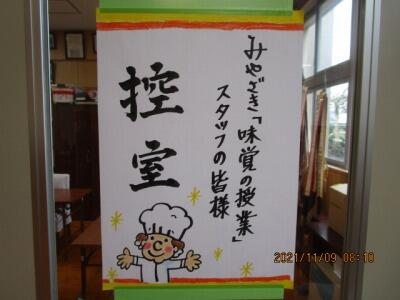 みやざき「味覚の授業」
スタッフの皆様
控室
2021/11/09 08:10